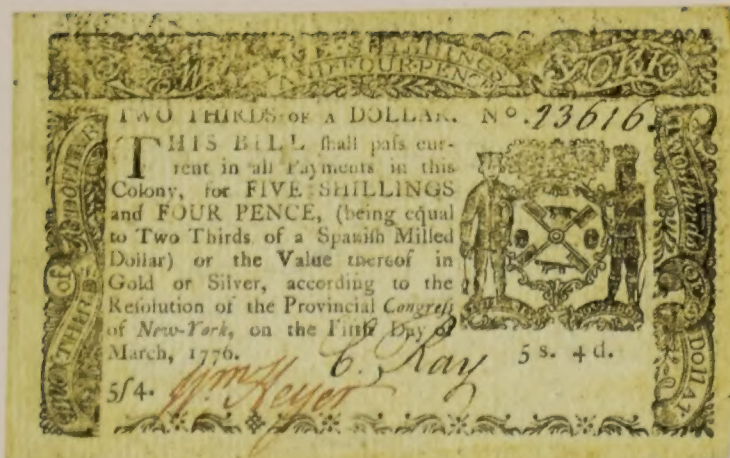 NEW
FIVE SHILLINGS
AND FOUR-PENCE
YORK
TWO THIRDS OF A DOLLAR. No. 23616.
THIS BILL ſhall paſs cur-
rent in all Payments in this
Colony, for FIVE SHILLINGS
and FOUR PENCE, (being equal
to Two Thirds of a Spaniſh Milled
Dollar) or the Value thereof in
Gold or Silver, according to the
Reſolution of the Provincial Congreſs
of New-York, on the Fifth Day of
March, 1776.
C. Ray
5 s. 4 d.
5ſ4.
Wm Heyer
TWO THIRDS
of A DOLLAR
Two thirds OF A DOLLAR